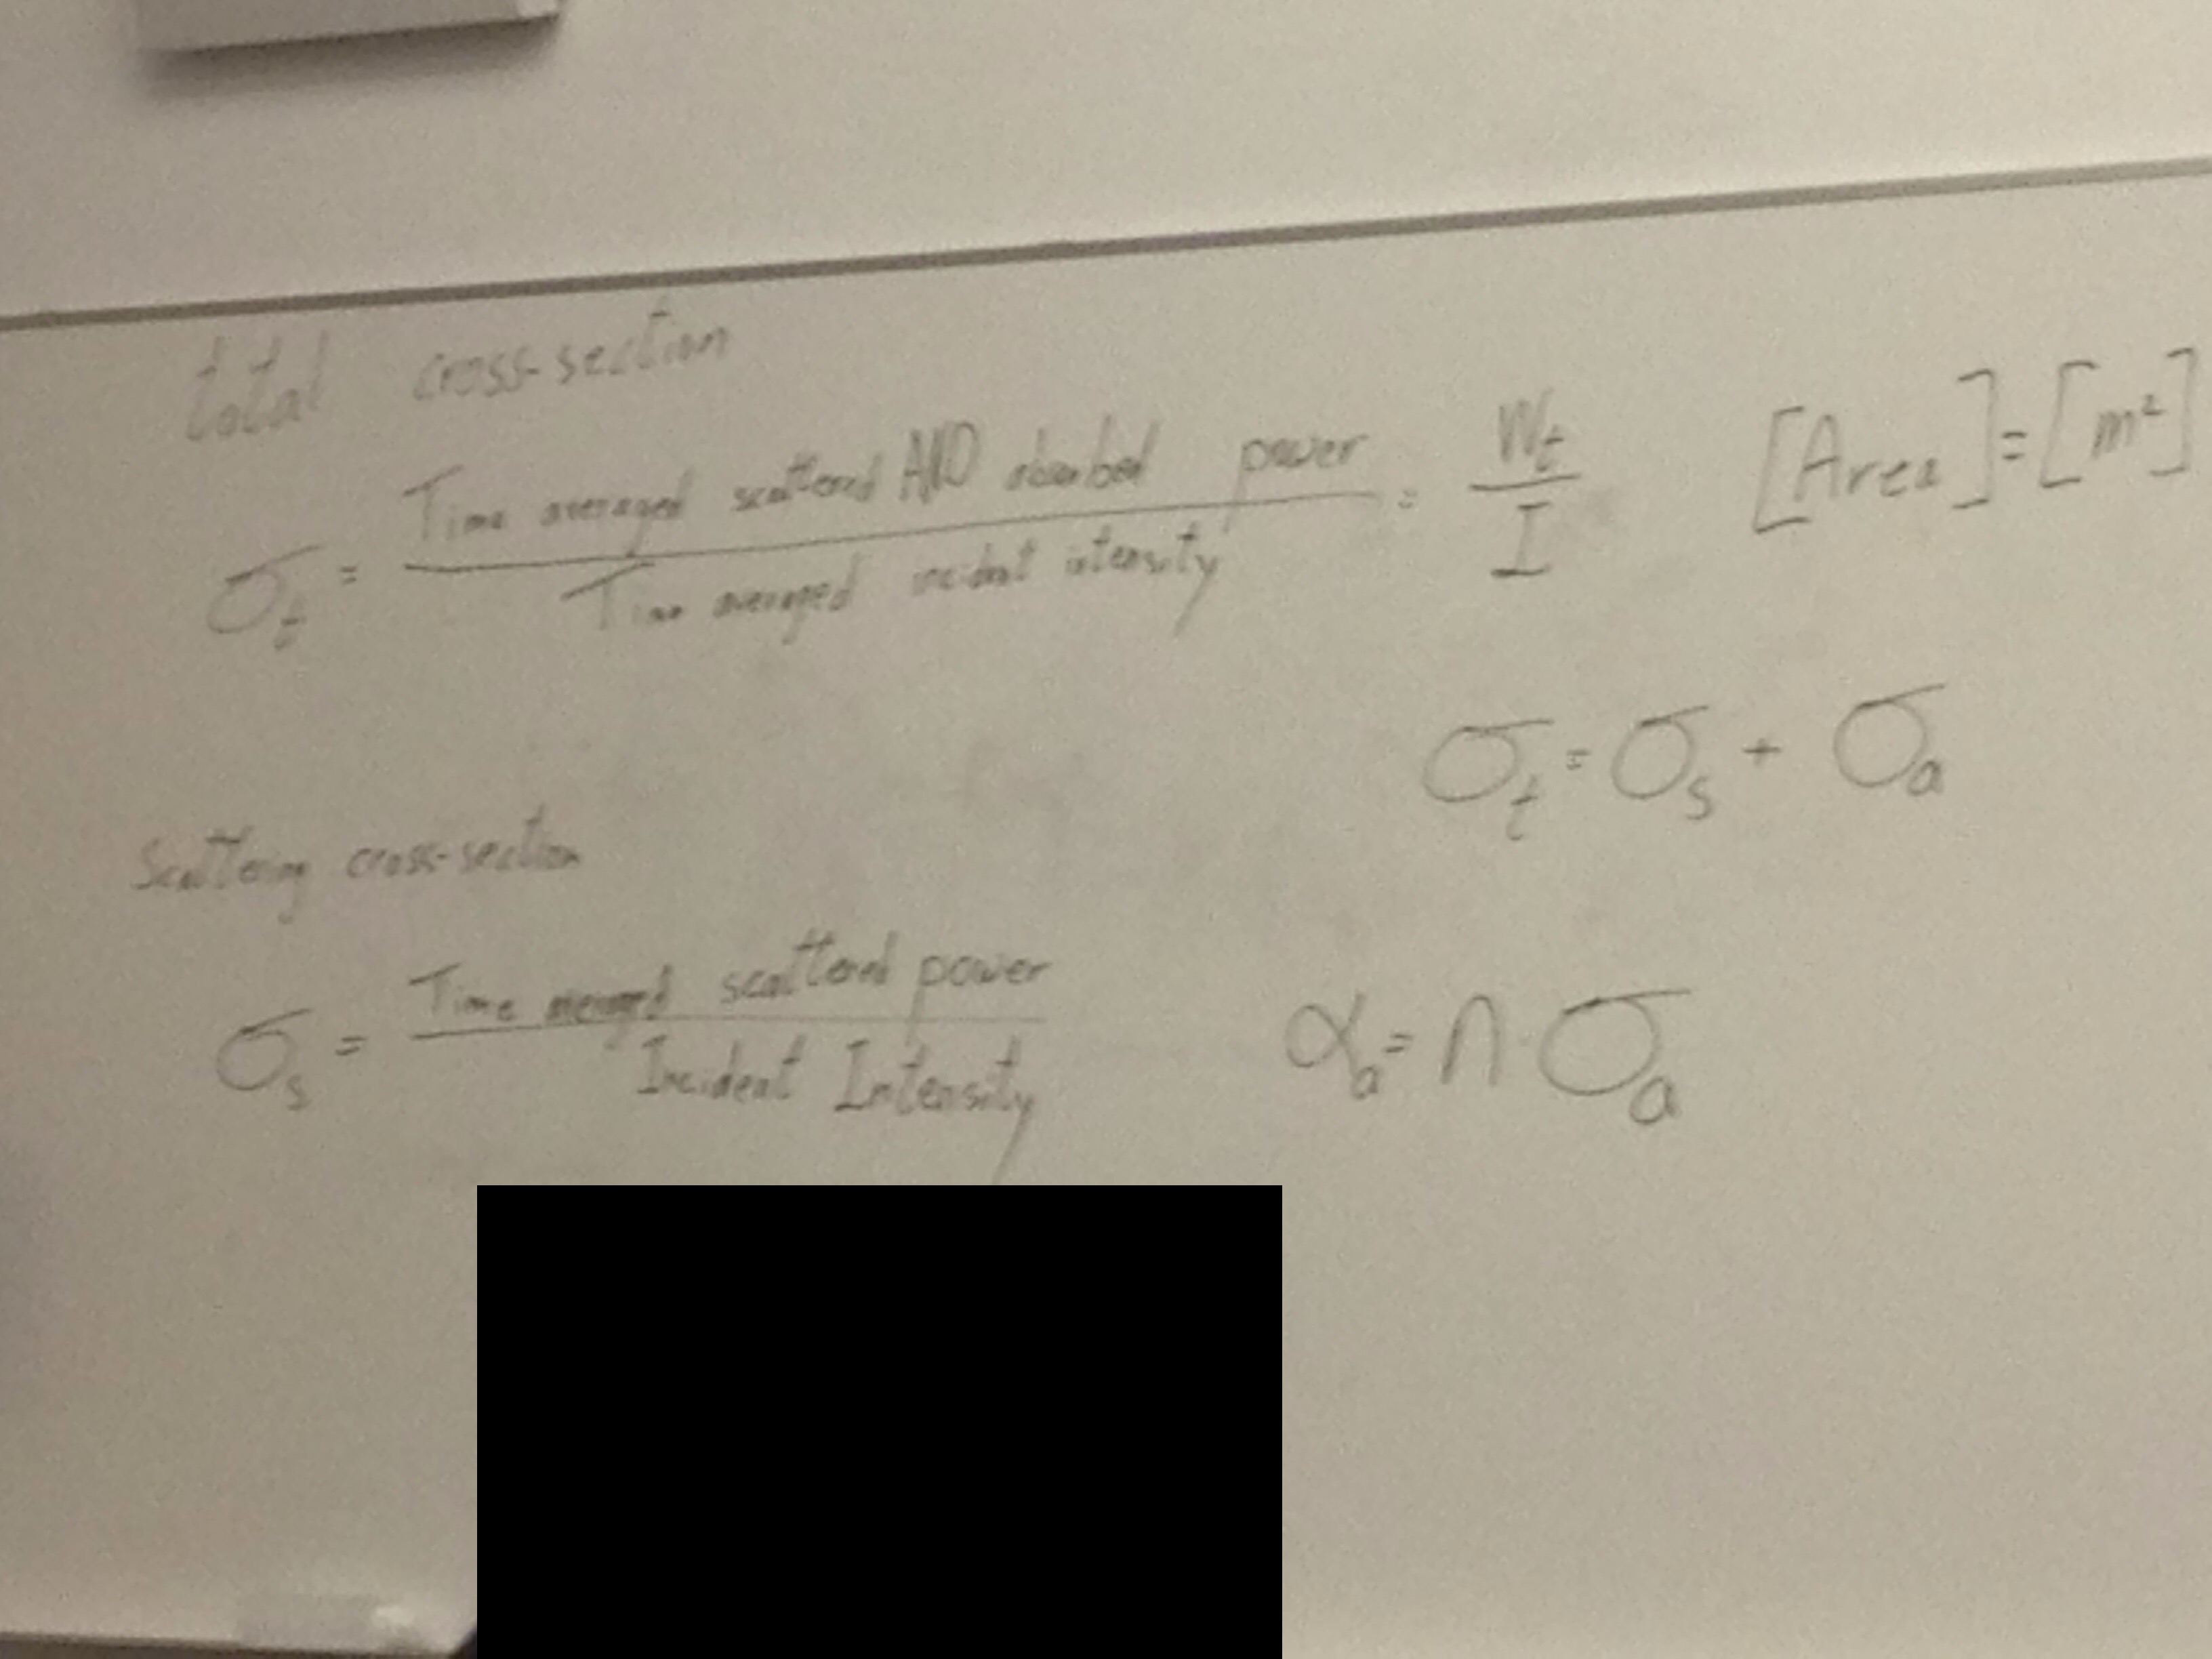 total cross-section
σt = Time averaged scattered AND absorbed power / Time averaged incident intensity = Wt / I [Area] = [m²]
σt = σs + σa
Scattering cross-section
σs = Time averaged scattered power / Incident Intensity
αa = n · σa